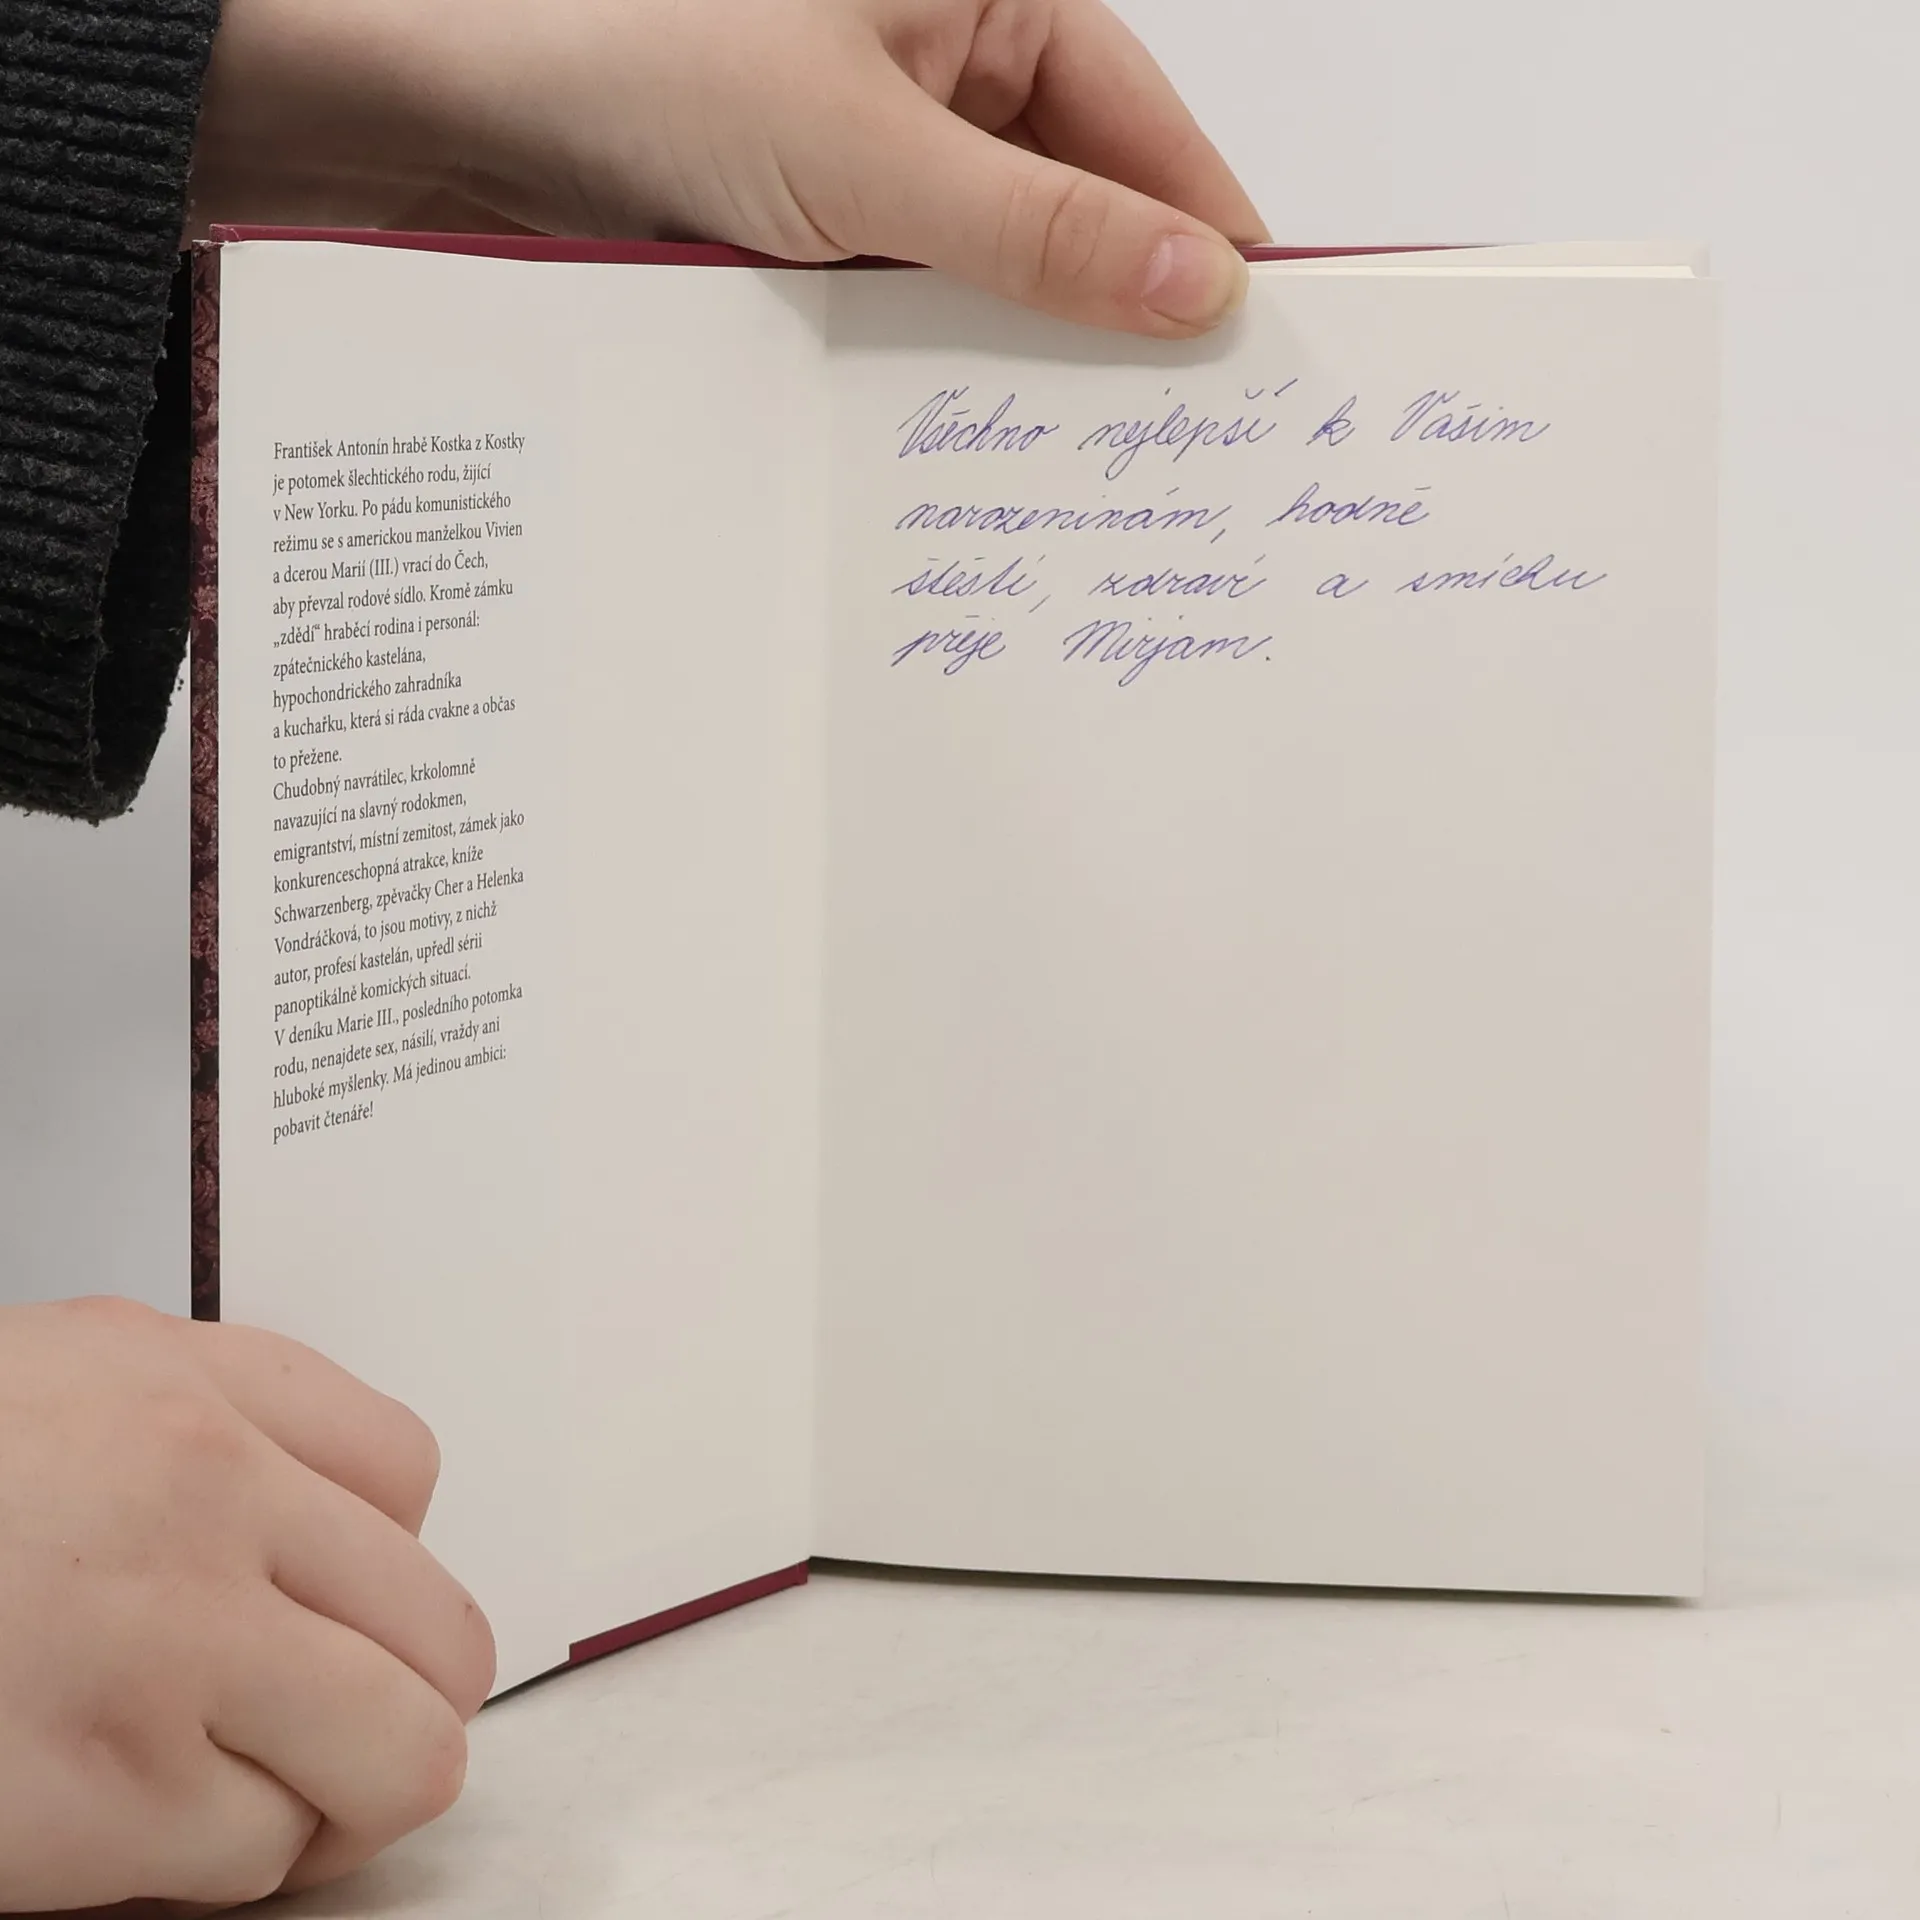 František Antonín hrabě Kostka z Kostky
je potomek šlechtického rodu, žijící
v New Yorku. Po pádu komunistického
režimu se s americkou manželkou Vivien
a dcerou Marií (III.) vrací do Čech,
aby převzal rodové sídlo. Kromě zámku
„zdědí“ hraběcí rodina i personál:
zpátečnického kastelána,
hypochondrického zahradníka
a kuchařku, která si ráda cvakne a občas
to přežene.
Chudobný navrátilec, krkolomně
navazující na slavný rodokmen,
emigrantství, místní zemitost, zámek jako
konkurenceschopná atrakce, kníže
Schwarzenberg, zpěvačky Cher a Helenka
Vondráčková, to jsou motivy, z nichž
autor, profesí kastelán, upředl sérii
panoptikálně komických situací.
V deníku Marie III., posledního potomka
rodu, nenajdete sex, násilí, vraždy ani
hluboké myšlenky. Má jedinou ambici:
pobavit čtenáře!
Všechno nejlepší k Vašim
narozeninám, hodně
štěstí, zdraví a smíchu
přeje Mirjam.